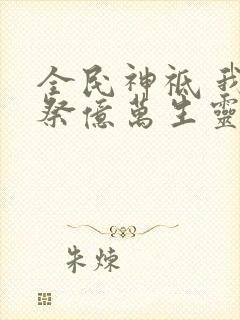 全民神祇 我
祭億萬生靈
朱煉